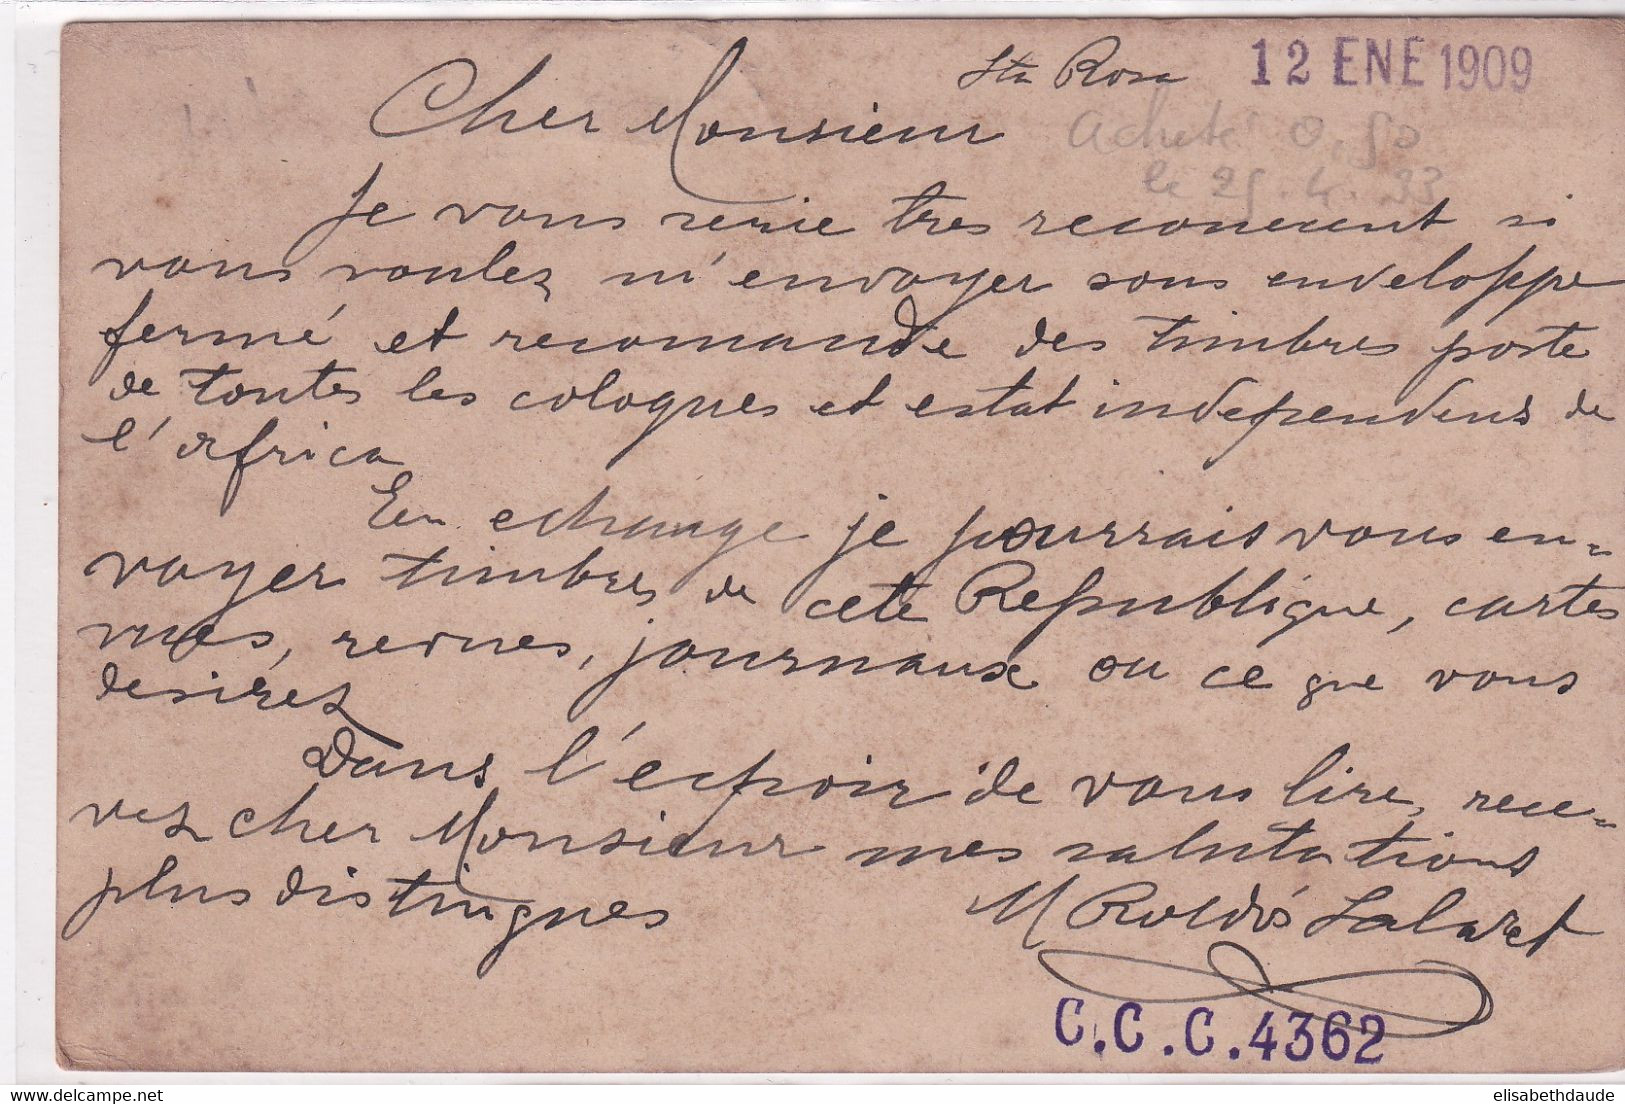 Sta Rosa 12 ENE 1909
Cher Monsieur
Acheté 0,50
le 25.4.33
Je vous serie tres reconecent si
vous voulez m'envoyer sous enveloppe
fermé et recomande des timbres poste
de toutes les cologues et estat independens de
l'Africa
En echange je pourrais vous en=
voyer timbres de cete Republique, cartes
vues, revues, journaux ou ce que vous
desirez
Dans l'espoir de vous lire, rece=
vez cher Monsieur mes salutations
plus distingues
M Roldós
C.C.C.4362
delcampe.net
elisabethdaude